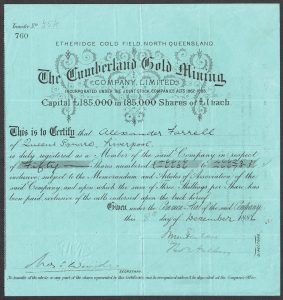 Transfer No
760
ETHERIDGE GOLD FIELD NORTH QUEENSLAND
The Cumberland Gold Mining
COMPANY, LIMITED
INCORPORATED UNDER THE JOINT STOCK COMPANIES ACTS 1862-1883.
Capital £185,000 in 185,000 Shares of £1 each
This is to Certify that Alexander Farrell
of Queens Square, Liverpool.
is duly registered as a Member of the said Company in respect
of Fifty Shares numbered to
inclusive, subject to the Memorandum and Articles of Association of the
said Company, and upon which the sum of Three Shillings per Share has
been paid inclusive of the calls indorsed upon the back hereof.
Given under the Common Seal of the said Company
this 8th day of December 1886
SECRETARY
No transfer of the whole or any part of the shares represented by this Certificate can be recognised unless it be deposited at the Company's Office.